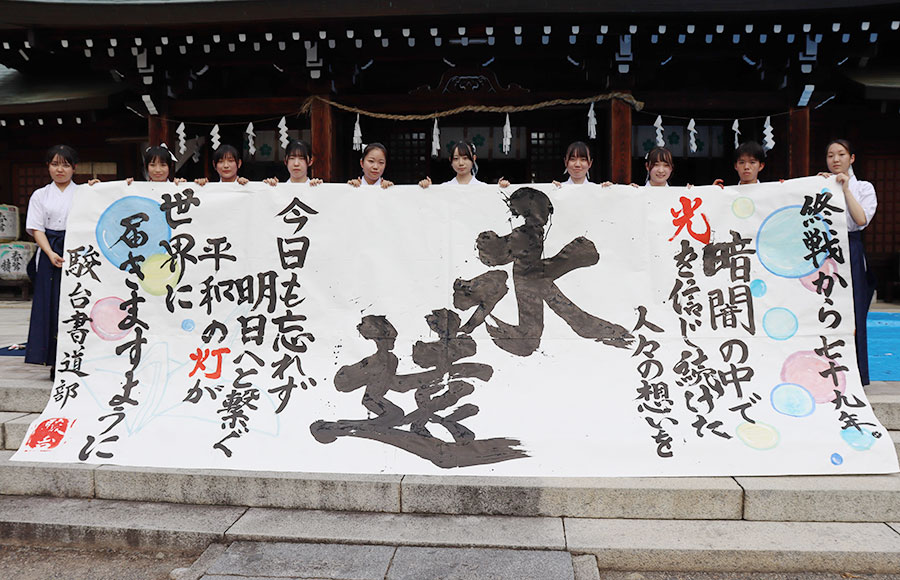 終戦から七十九年。
暗闇の中で
光を信じ続けた
人々の想いを
永遠
今日も忘れず
明日へと繋ぐ
平和の灯が
世界に
届きますように
駿台書道部
駿台